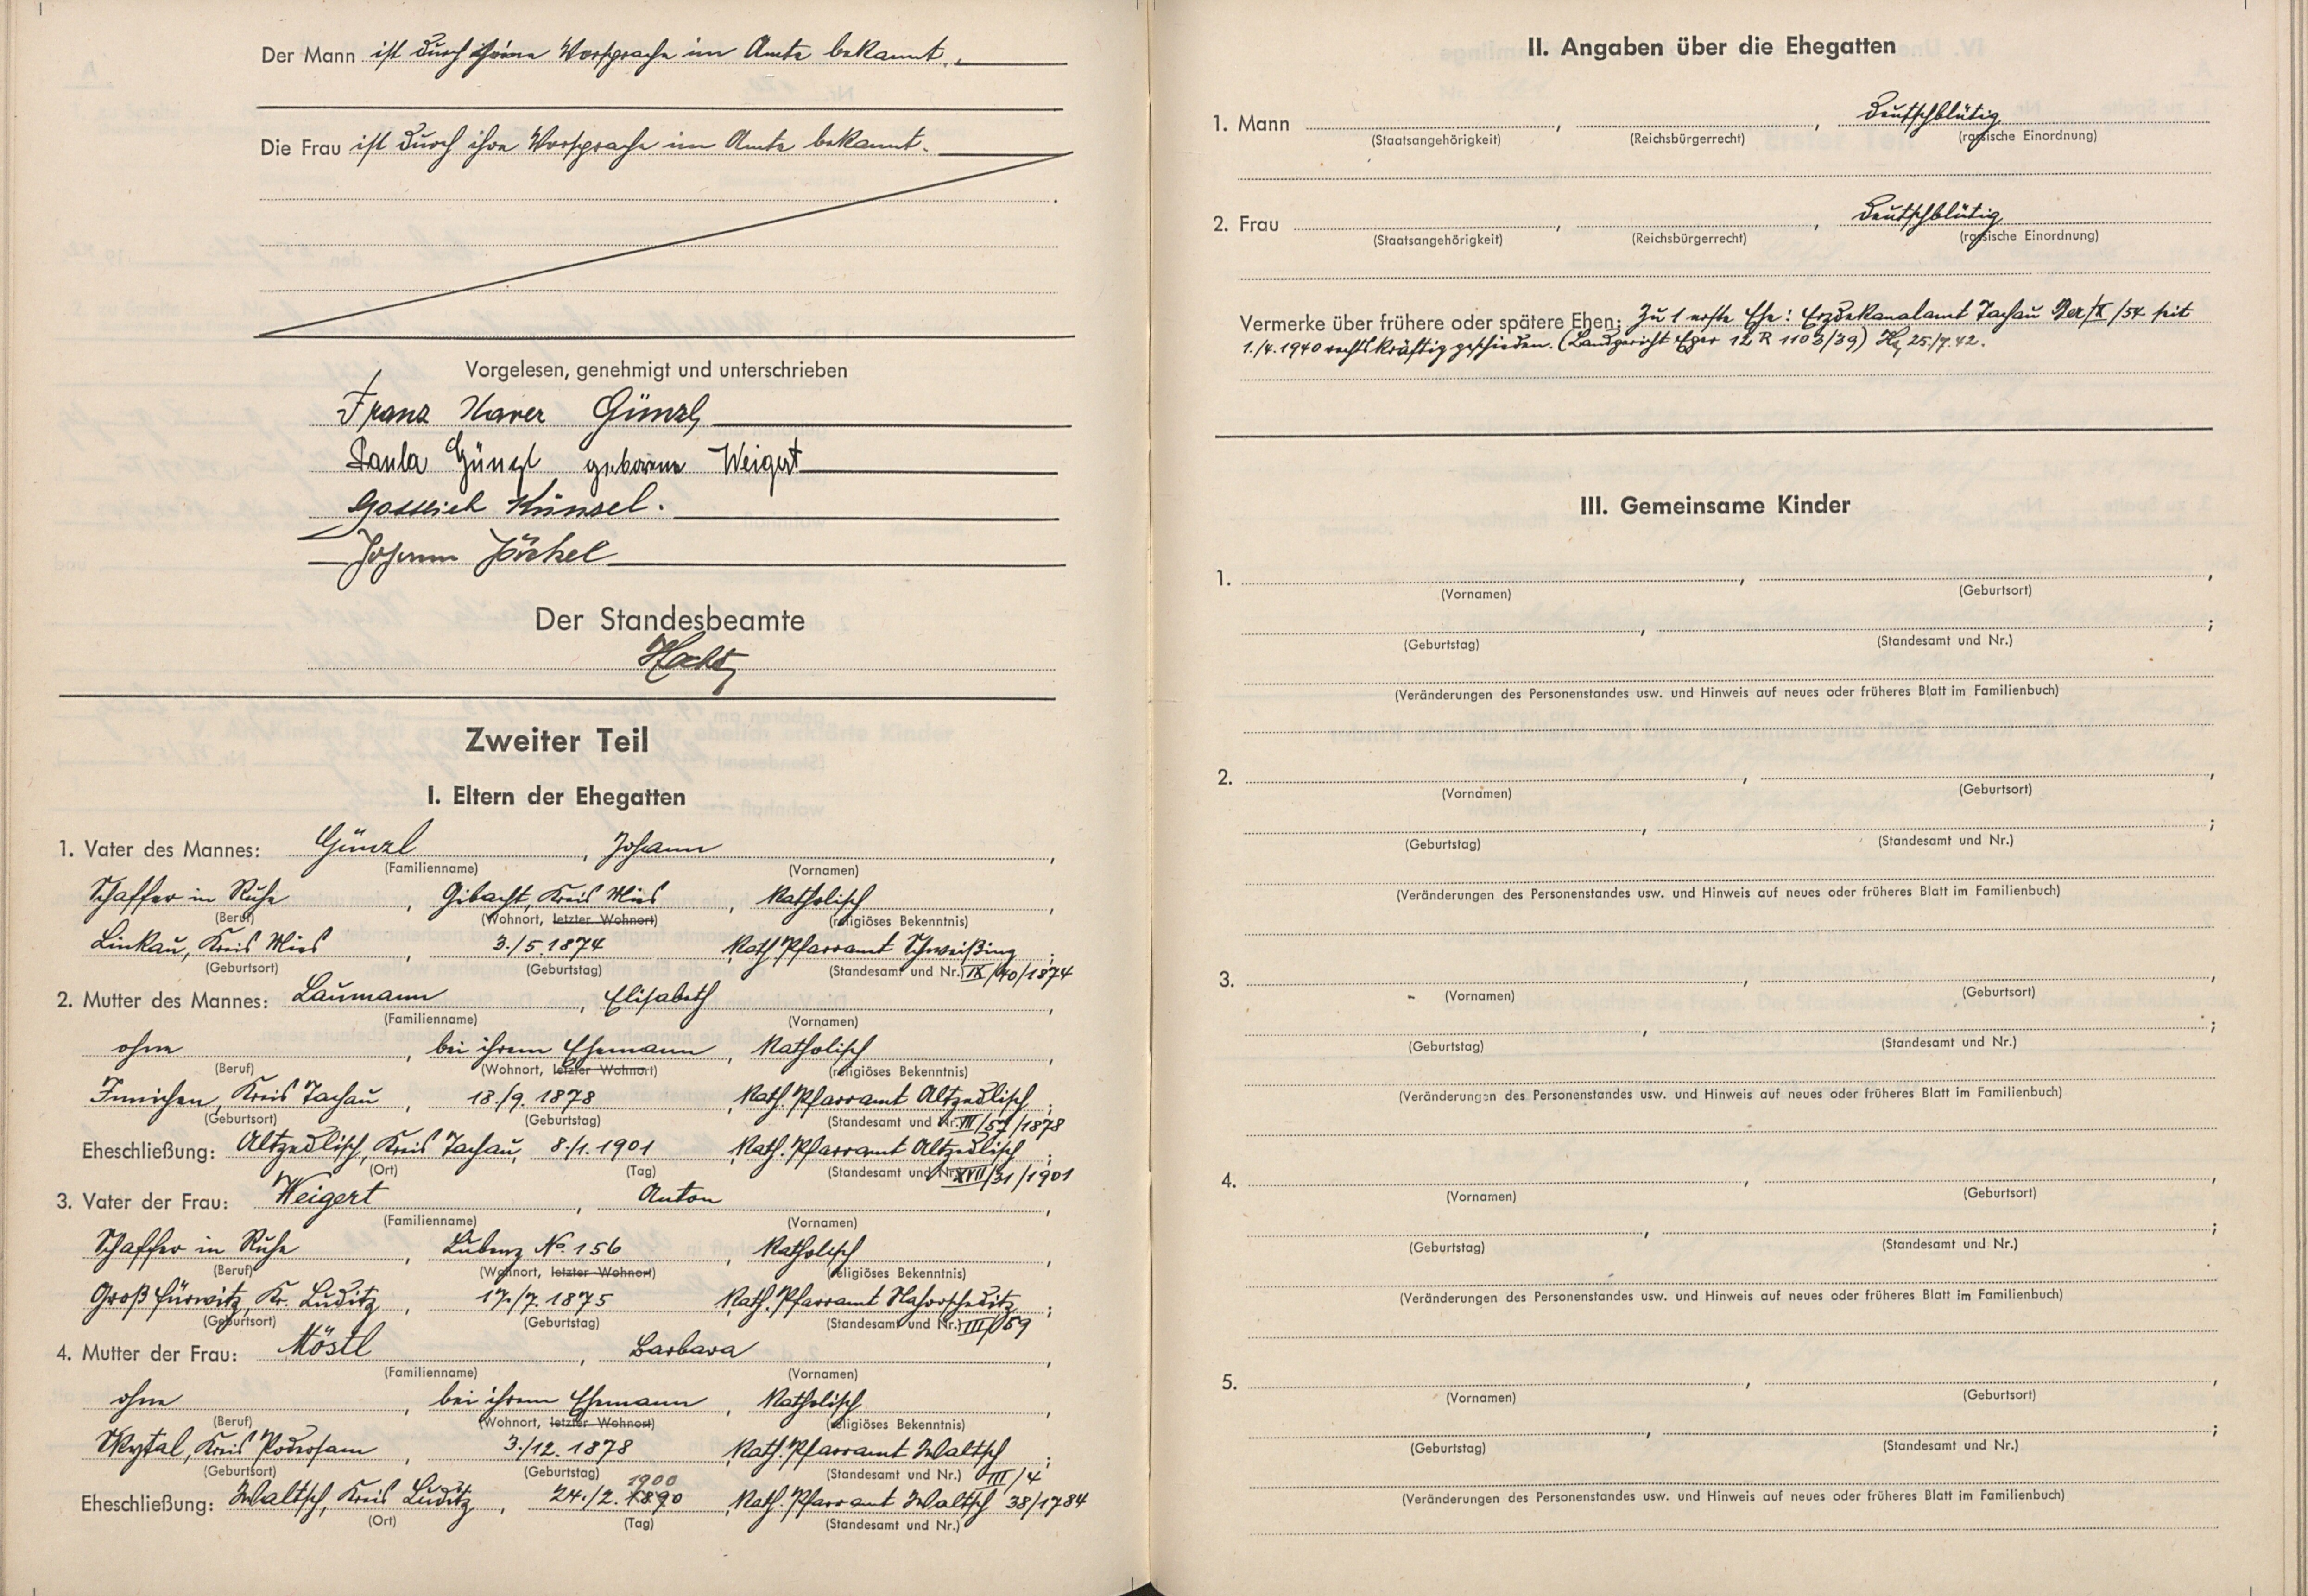 Der Mann ist durch seine Vorsprache im Amte bekannt.
Die Frau ist durch ihre Vorsprache im Amte bekannt.
Vorgelesen, genehmigt und unterschrieben
Franz Xaver Günzl
Paula Günzl geborene Weigert
Gottlieb Künzel.
Johann Jöckel
Der Standesbeamte
Zweiter Teil
I. Eltern der Ehegatten
1. Vater des Mannes: Günzl, Johann,
(Familienname) (Vornamen)
Schaffer in Ruhe, Gibacht, Kreis Mies, Katholisch,
(Beruf) (Wohnort, letzter Wohnort) (religiöses Bekenntnis)
Linkau, Kreis Mies, 3./5.1874 Kath. Pfarramt Schweißing;
(Geburtsort) (Geburtstag) (Standesamt und Nr.) IX/40/1874
2. Mutter des Mannes: Laumann, Elisabeth,
(Familienname) (Vornamen)
ohne, bei ihrem Ehemann, Katholisch,
(Beruf) (Wohnort, letzter Wohnort) (religiöses Bekenntnis)
Innichen, Kreis Tachau, 18./9.1878, Kath. Pfarramt Altzedlisch;
(Geburtsort) (Geburtstag) (Standesamt und Nr.) III/57/1878
Eheschließung: Altzedlisch, Kreis Tachau, 8./1.1901 Kath. Pfarramt Altzedlisch;
(Ort) (Tag) (Standesamt und Nr.) XVII/31/1901
3. Vater der Frau: Weigert, Anton,
(Familienname) (Vornamen)
Schaffer in Ruhe, Lubenz No. 156, Katholisch,
(Beruf) (Wohnort, letzter Wohnort) (religiöses Bekenntnis)
Großfürwitz, Kr. Luditz, 17./7.1875 Kath. Pfarramt Nahorscheditz;
(Geburtsort) (Geburtstag) (Standesamt und Nr.) III/59
4. Mutter der Frau: Möstl, Barbara,
(Familienname) (Vornamen)
ohne, bei ihrem Ehemann, Katholisch,
(Beruf) (Wohnort, letzter Wohnort) (religiöses Bekenntnis)
Skytal, Kreis Podersam, 3./12.1878 Kath. Pfarramt Waltsch;
(Geburtsort) (Geburtstag) (Standesamt und Nr.) III/4
1900
Eheschließung: Waltsch, Kreis Luditz, 24./2.1890, Kath. Pfarramt Waltsch 38/1784
(Ort) (Tag) (Standesamt und Nr.)
II. Angaben über die Ehegatten
1. Mann , , deutschblütig
(Staatsangehörigkeit) (Reichsbürgerrecht) (rassische Einordnung)
2. Frau , , deutschblütig
(Staatsangehörigkeit) (Reichsbürgerrecht) (rassische Einordnung)
Vermerke über frühere oder spätere Ehen: Zu 1 erste Ehe: Erzdekanalamt Tachau /54 seit
1./4.1940 rechtskräftig geschieden. (Landgericht Eger 12 R 1103/39) 25./7.42.
III. Gemeinsame Kinder
1. , ,
(Vornamen) (Geburtsort)
, ;
(Geburtstag) (Standesamt und Nr.)
(Veränderungen des Personenstandes usw. und Hinweis auf neues oder früheres Blatt im Familienbuch)
2. , ,
(Vornamen) (Geburtsort)
, ;
(Geburtstag) (Standesamt und Nr.)
(Veränderungen des Personenstandes usw. und Hinweis auf neues oder früheres Blatt im Familienbuch)
3. , ,
(Vornamen) (Geburtsort)
, ;
(Geburtstag) (Standesamt und Nr.)
(Veränderungen des Personenstandes usw. und Hinweis auf neues oder früheres Blatt im Familienbuch)
4. , ,
(Vornamen) (Geburtsort)
, ;
(Geburtstag) (Standesamt und Nr.)
(Veränderungen des Personenstandes usw. und Hinweis auf neues oder früheres Blatt im Familienbuch)
5. , ,
(Vornamen) (Geburtsort)
, ;
(Geburtstag) (Standesamt und Nr.)
(Veränderungen des Personenstandes usw. und Hinweis auf neues oder früheres Blatt im Familienbuch)